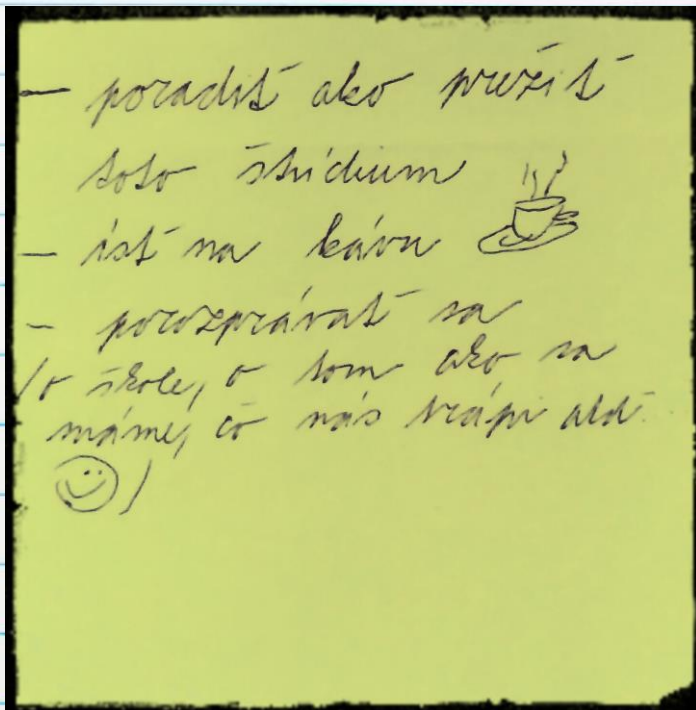 – poradiť ako prežiť
toto štúdium
– ísť na kávu
– porozprávať sa
(o škole, o tom ako sa
máme, čo nás trápi atď.
)